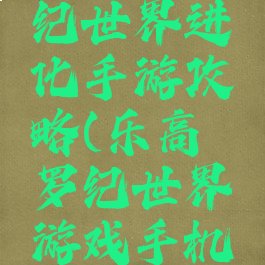 纪世界进
化手游攻
略(乐高
罗纪世界
游戏手机